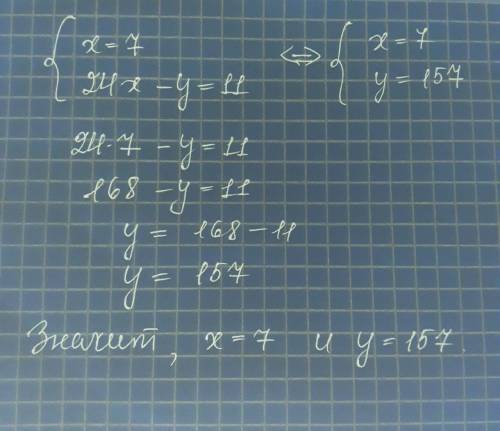 x = 7 ⇔ x = 7
24x − y = 11 y = 157
24·7 − y = 11
168 − y = 11
y = 168 − 11
y = 157
Значит, x = 7 и y = 157.